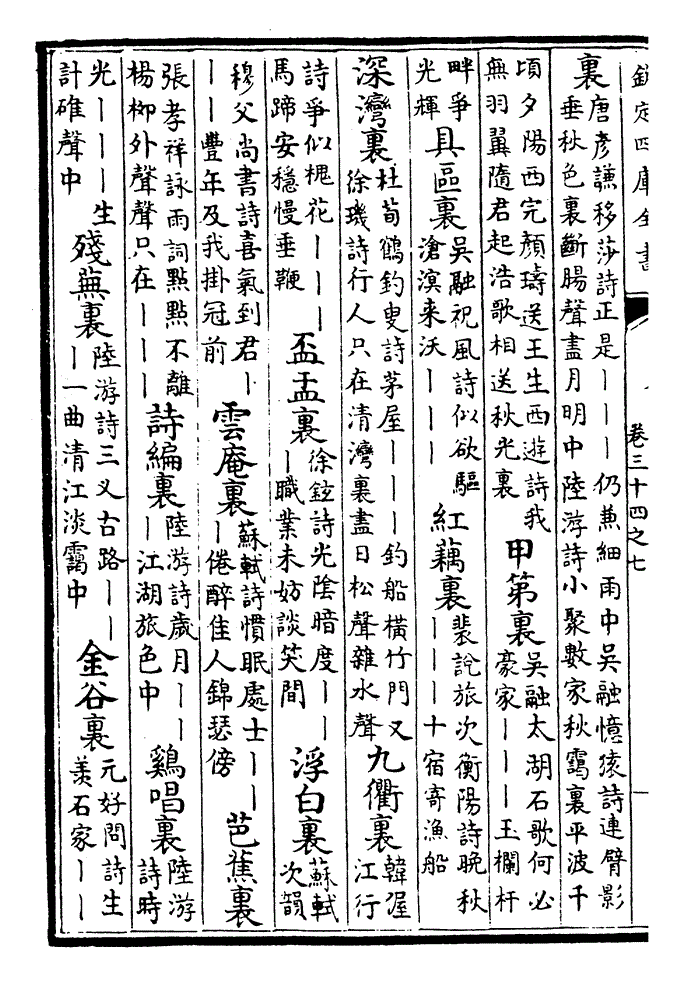 欽定四庫全書 卷三十四之七
裏 唐彥謙移莎詩正是｜｜｜仍兼細雨中吳融憶猿詩連臂影垂秋色裏斷腸聲盡月明中陸游詩小聚數家秋靄裏平波千
頃夕陽西完顏璹送王生西遊詩我無羽翼隨君起浩歌相送秋光裏 甲第裏 吳融太湖石歌何必豪家｜｜｜玉欄杆
畔爭光輝 具區裏 吳融祝風詩似欲驅滄溟来沃｜｜｜ 紅藕裏 裴說旅次衡陽詩晚秋｜｜｜十宿寄漁船
深灣裏 杜荀鶴釣叟詩茅屋｜｜｜釣船橫竹門又徐璣詩行人只在清灣裏盡日松聲雜水聲 九衢裏 韓偓江行
詩爭似槐花｜｜｜馬蹄安穩慢垂鞭 盃盂裏 徐鉉詩光陰暗度｜｜｜職業未妨談笑間 浮白裏 蘇軾次韻
穆父尚書詩喜氣到君｜｜｜豐年及我掛冠前 雲庵裏 蘇軾詩慣眠處士｜｜｜倦醉佳人錦瑟傍 芭蕉裏
張孝祥詠雨詞點點不離楊柳外聲聲只在｜｜｜ 詩編裏 陸游詩歲月｜｜｜江湖旅色中 鷄唱裏 陸游詩時
光｜｜｜生計碓聲中 殘蕪裏 陸游詩三义古路｜｜｜一曲清江淡靄中 金谷裏 元好問詩生羨石家｜｜